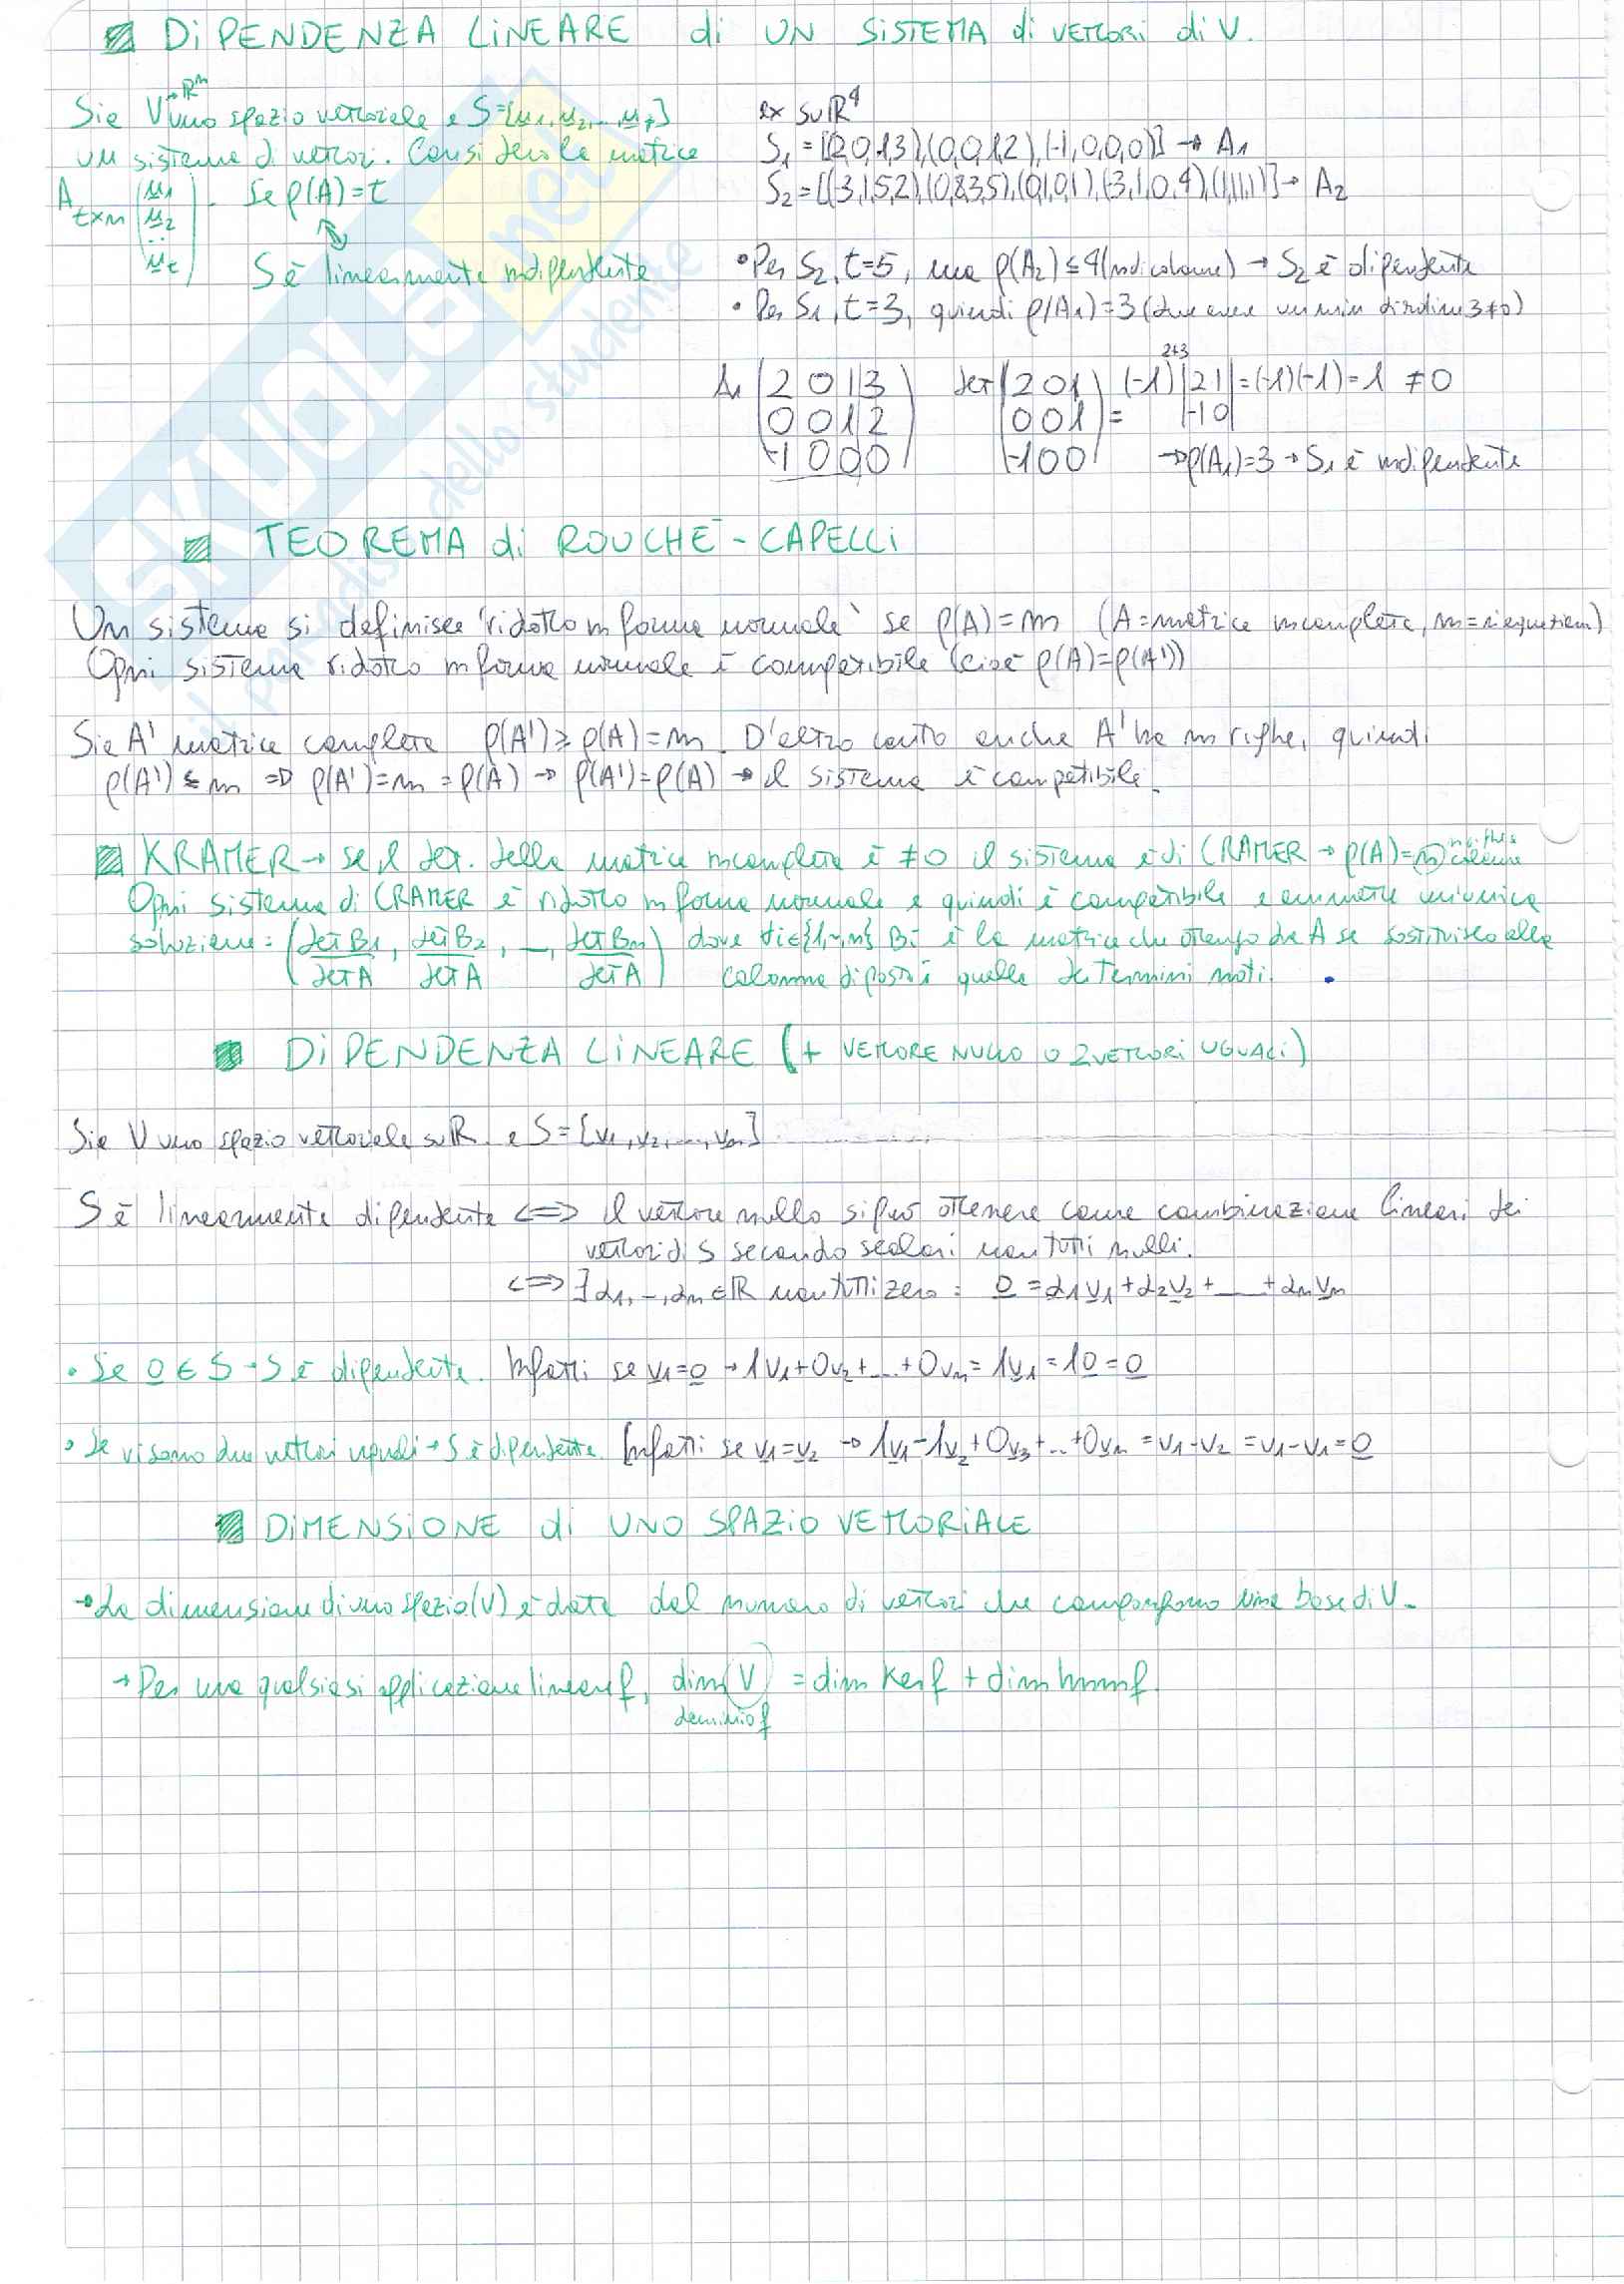 DIPENDENZA LINEARE di UN SISTEMA di VETTORI di V.
Sia V uno spazio vettoriale e S=[u1,u2,...,ut]
→ℝⁿ
un sistema di vettori. Considero la matrice
A t×n (u1 u2 ... ut). Se ρ(A)=t
S è linearmente indipendente
ex su ℝ⁴
S1=[(2,0,1,3),(0,0,1,2),(-1,0,0,0)] → A1
S2=[(-3,1,5,2),(0,8,3,5),(0,1,0,1),(3,1,0,4),(1,1,1,1)] → A2
• Per S2, t=5, ma ρ(A2)≤4 → S2 è dipendente
• Per S1, t=3, quindi ρ(A1)=3 (deve avere un min di ordine 3≠0)
A1 (2 0 1 3 det (2 0 1) (-1)²⁺³ |2 1| =(-1)(-1)=1 ≠0
0 0 1 2 (0 0 1) = |-1 0|
-1 0 0 0) (-1 0 0) →ρ(A1)=3 → S1 è indipendente
TEOREMA di ROUCHÉ-CAPELLI
Un sistema si definisce 'ridotto in forma normale' se ρ(A)=m (A=matrice incompleta, m=n°equazioni)
Ogni sistema ridotto in forma normale è compatibile (cioè ρ(A)=ρ(A'))
Sia A' matrice completa ρ(A')≥ρ(A)=m. D'altro canto anche A' ha m righe, quindi
ρ(A')≤m ⇒ ρ(A')=m=ρ(A) → ρ(A')=ρ(A) → il sistema è compatibile.
KRAMER → se il det. della matrice incompleta è ≠0 il sistema è di CRAMER → ρ(A)=n righe colonne
Ogni sistema di CRAMER è ridotto in forma normale e quindi è compatibile e ammette un'unica
soluzione: (detB1/detA, detB2/detA, ..., detBn/detA) dove ∀i∈{1,...,n} Bi è la matrice che ottengo da A se sostituisco alla
colonna di posto i quella dei termini noti.
DIPENDENZA LINEARE (+ VETTORE NULLO O 2 VETTORI UGUALI)
Sia V uno spazio vettoriale su ℝ e S=[v1,v2,...,vn]
S è linearmente dipendente ⇔ il vettore nullo si può ottenere come combinazione lineari dei
vettori di S secondo scalari non tutti nulli.
⇔ ∃ α1,...,αn ∈ ℝ non tutti zero : 0=α1v1+α2v2+...+αnvn
• Se 0∈S → S è dipendente. Infatti se v1=0 → 1v1+0v2+...+0vn=1v1=10=0
• Se vi sono due vettori uguali → S è dipendente. Infatti se v1=v2 → 1v1-1v2+0v3+...+0vn=v1-v2=v1-v1=0
DIMENSIONE di UNO SPAZIO VETTORIALE
→ La dimensione di uno spazio (V) è data dal numero di vettori che compongono una base di V.
→ Per una qualsiasi applicazione lineare f, dim(V) = dim Ker f + dim Imm f.
dominio f
SKUOLA.net
il paradiso dello studente